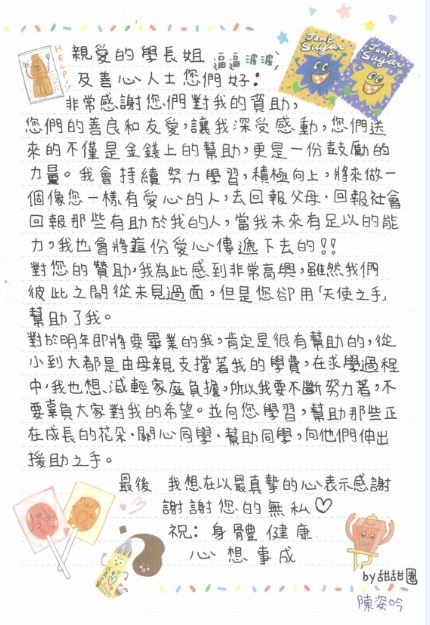 親愛的學長姐
及善心人士您們好：
非常感謝您們對我的資助，
您們的善良和友愛，讓我深受感動，您們送
來的不僅是金錢上的幫助，更是一份鼓勵的
力量。我會持續努力學習，積極向上，將來做一
個像您一樣有愛心的人，去回報父母、回報社會
回報那些有助於我的人，當我未來有足以的能
力，我也會將這份愛心傳遞下去的!!
對您的贊助，我為此感到非常高興，雖然我們
彼此之間從未見過面，但是您卻用「天使之手」
幫助了我。
對於明年即將要畢業的我，肯定是很有幫助的，從
小到大都是由母親支撐著我的學費，在求學過程
中，我也想減輕家庭負擔，所以我要不斷努力著，不
要辜負大家對我的希望。並向您學習，幫助那些正
在成長的花朵、關心同學、幫助同學，向他們伸出
援助之手。
最後 我想在以最真摯的心表示感謝
謝謝您的無私♡
祝：身體健康
心想事成
by甜甜圈
陳姿吟
HELP!
逼逼波波
Jump Sugar
Jump Sugar